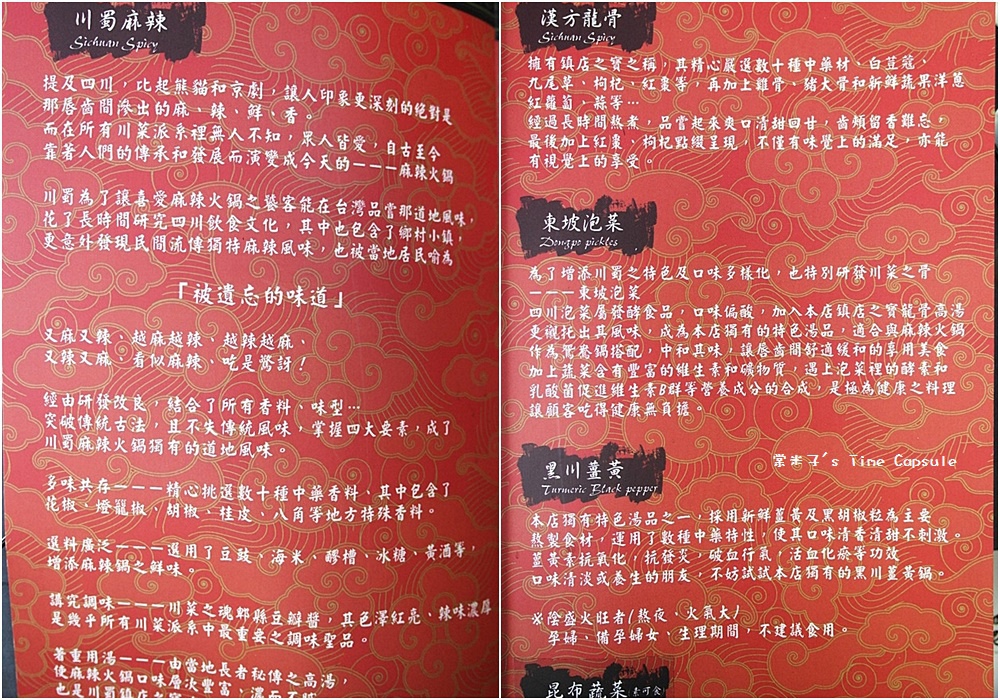 川蜀麻辣
Sichuan Spicy
提及四川，比起熊貓和京劇，讓人印象更深刻的絕對是
那唇齒間滲出的麻、辣、鮮、香。
而在所有川菜派系裡無人不知，眾人皆愛，自古至今
靠著人們的傳承和發展而演變成今天的———麻辣火鍋
川蜀為了讓喜愛麻辣火鍋之饕客能在台灣品嘗那道地風味，
花了長時間研究四川飲食文化，其中也包含了鄉村小鎮，
更意外發現民間流傳獨特麻辣風味，也被當地居民喻為
「被遺忘的味道」
又麻又辣、越麻越辣、越辣越麻、
又辣又麻、看似麻辣、吃是驚訝！
經由研發改良，結合了所有香料、味型…
突破傳統古法，且不失傳統風味，掌握四大要素，成了
川蜀麻辣火鍋獨有的道地風味。
多味共存———精心挑選數十種中藥香料、其中包含了
花椒、燈籠椒、胡椒、桂皮、八角等地方特殊香料。
選料廣泛———選用了豆豉、海米、醪糟、冰糖、黃酒等，
增添麻辣鍋之鮮味。
講究調味———川菜之魂郫縣豆瓣醬，其色澤紅亮、辣味濃厚
是幾乎所有川菜派系中最重要之調味聖品。
著重用湯———由當地長者祕傳之高湯，
使麻辣火鍋口味層次豐富，濃而不膩
也是川蜀鎮店之寶
漢方龍骨
Sichuan Spicy
擁有鎮店之寶之稱，其精心嚴選數十種中藥材、白荳蔻、
九尾草、枸杞、紅棗等，再加上雞骨、豬大骨和新鮮蔬果洋蔥
紅蘿蔔、蒜等…
經過長時間熬煮，品嘗起來爽口清甜回甘，齒頰留香難忘，
最後加上紅棗、枸杞點綴呈現，不僅有味覺上的滿足，亦能
有視覺上的享受。
東坡泡菜
Dongpo pickles
為了增添川蜀之特色及口味多樣化，也特別研發川菜之骨
———東坡泡菜
四川泡菜屬發酵食品，口味偏酸，加入本店鎮店之寶龍骨高湯
更襯托出其風味，成為本店獨有的特色湯品，適合與麻辣火鍋
作為鴛鴦鍋搭配，中和其味，讓唇齒間舒適緩和的享用美食
加上蔬菜含有豐富的維生素和礦物質，遇上泡菜裡的酵素和
乳酸菌促進維生素B群等營養成分的合成，是極為健康之料理
讓顧客吃得健康無負擔。
黑川薑黃
Turmeric Black pepper
本店獨有特色湯品之一，採用新鮮薑黃及黑胡椒粒為主要
熬製食材，運用了數種中藥特性，使其口味清香清甜不刺激。
薑黃素抗氧化，抗發炎，破血行氣，活血化瘀等功效
口味清淡或養生的朋友，不妨試試本店獨有的黑川薑黃鍋。
※陰盛火旺者(熬夜、火氣大)
孕婦、備孕婦女、生理期間，不建議食用。
昆布蔬菜(素可食)
棠米子's Time Capsule